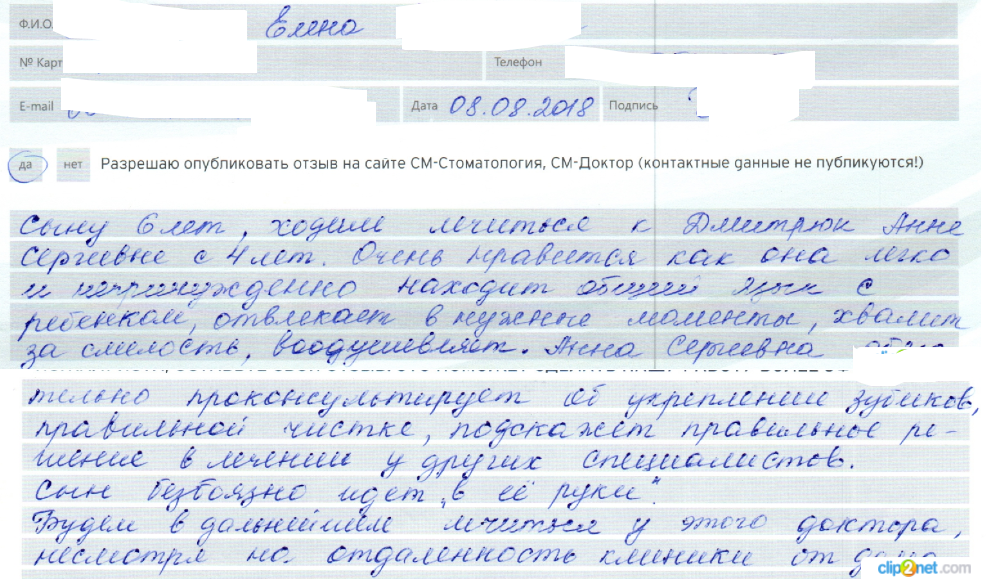 Ф.И.О. Елена
№ Карт Телефон
E-mail Дата 08.08.2018 Подпись
да нет Разрешаю опубликовать отзыв на сайте СМ-Стоматология, СМ-Доктор (контактные данные не публикуются!)
Сыну 6 лет, ходим лечиться к Дмитрюк Анне
Сергеевне с 4 лет. Очень нравится как она легко
и непринужденно находит общий язык с
ребенком, отвлекает в нужные моменты, хвалит
за смелость, воодушевляет. Анна Сергеевна
тельно проконсультирует об укреплении зубиков,
правильной чистке, подскажет правильное ре-
шение в лечении у других специалистов.
Сын безбоязно идет „в её руки".
Будем в дальнейшем лечиться у этого доктора,
несмотря на отдаленность клиники от дома
clip2net.com